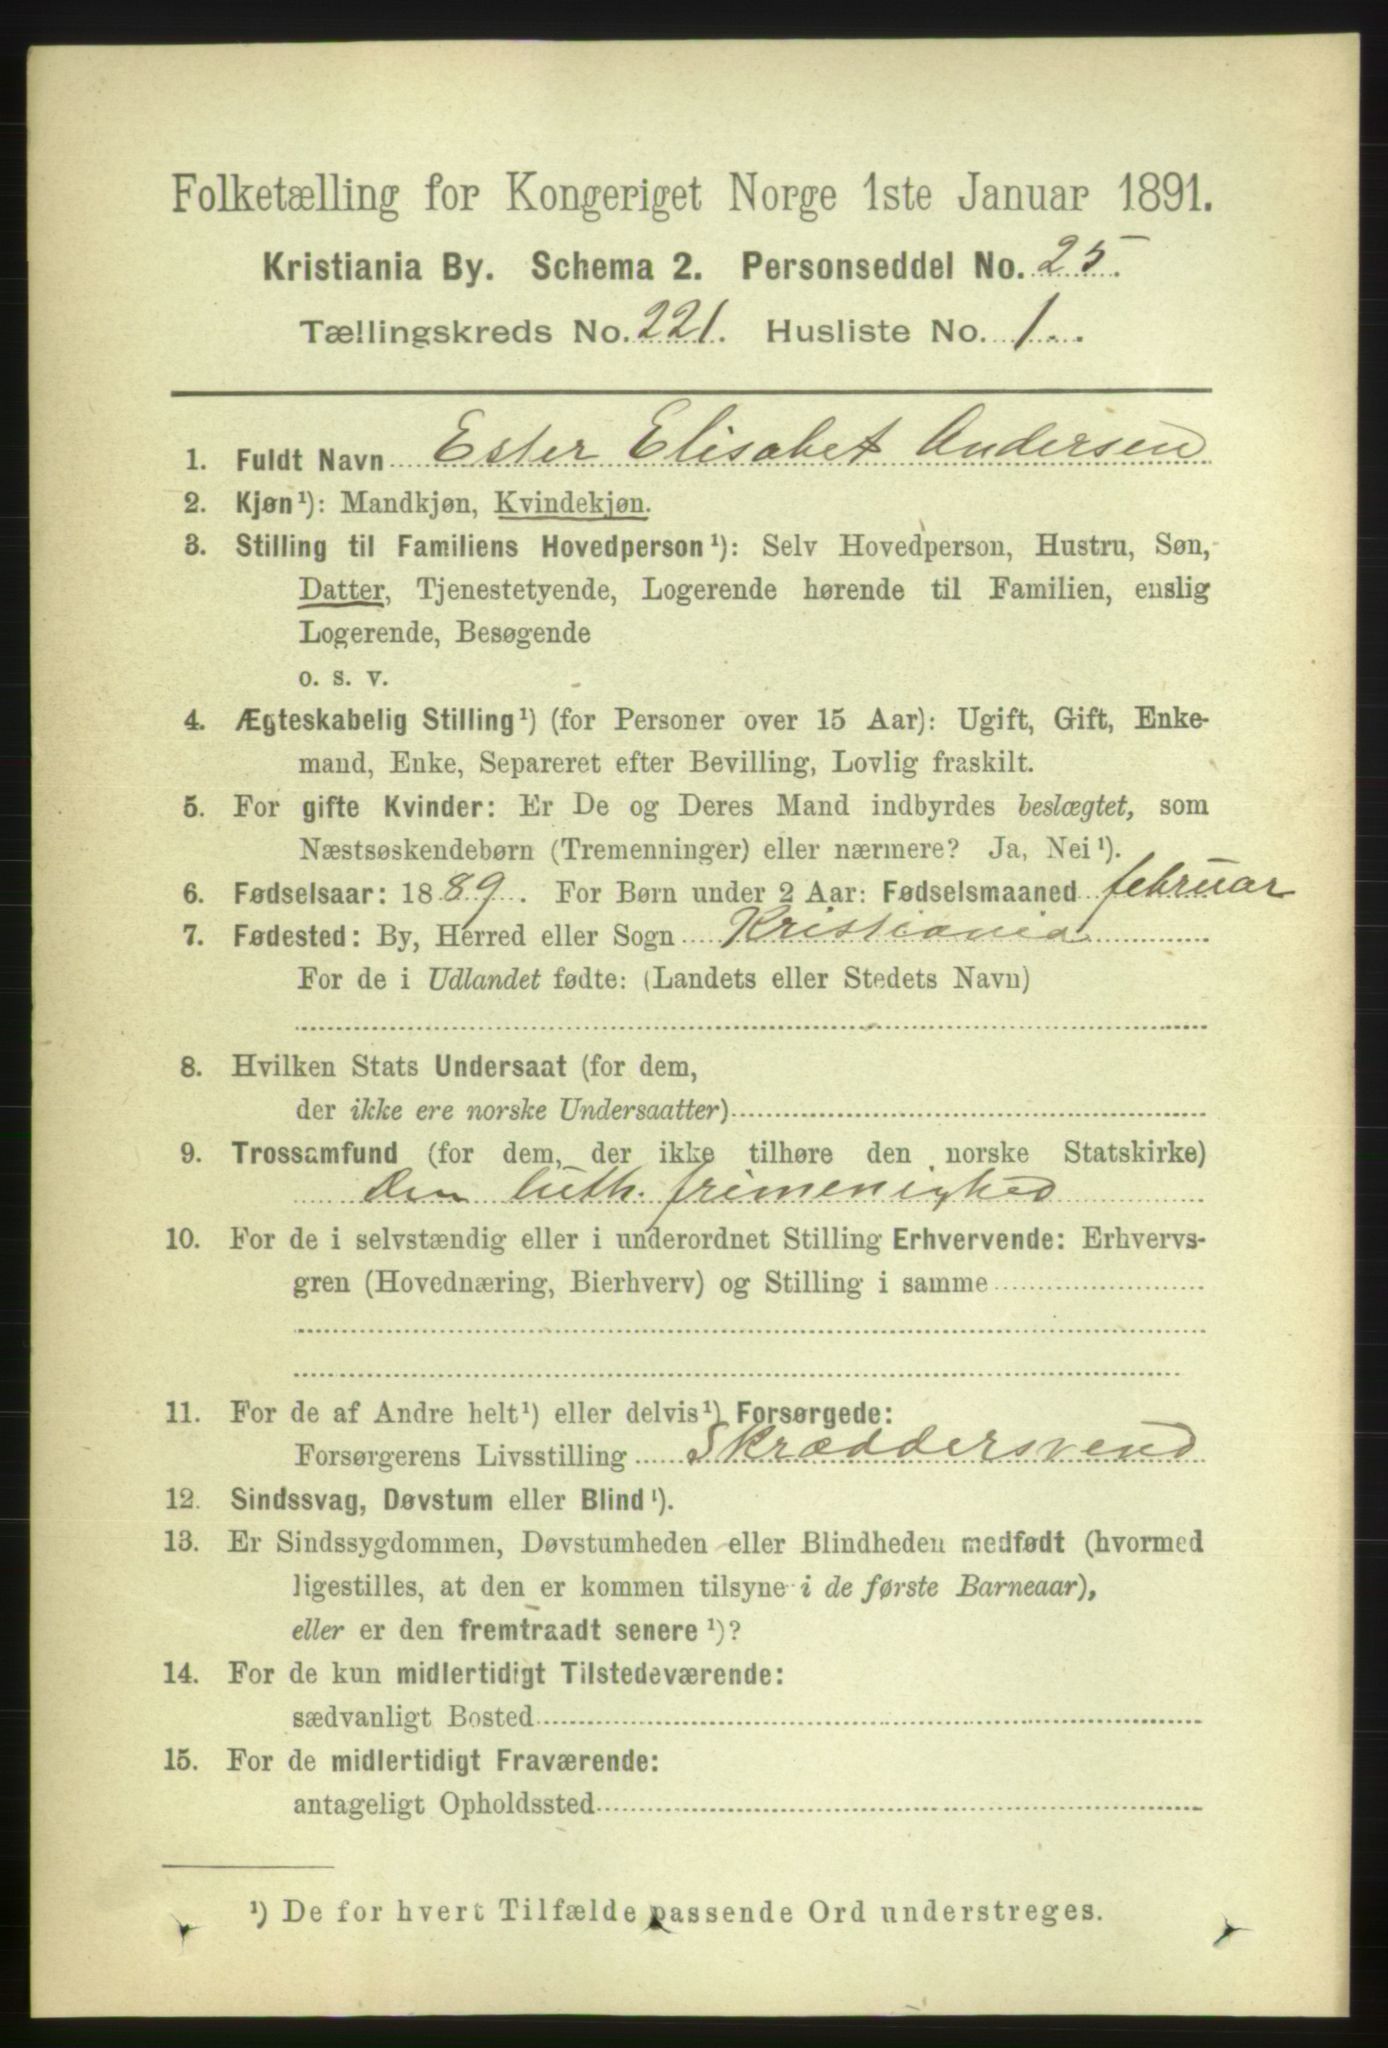 Folketælling for Kongeriget Norge 1ste Januar 1891.
Kristiania By. Schema 2. Personseddel No. 25.
Tællingskreds No. 221. Husliste No. 1.
1. Fuldt Navn Ester Elisabet Andersen
2. Kjøn¹): Mandkjøn, Kvindekjøn.
3. Stilling til Familiens Hovedperson¹): Selv Hovedperson, Hustru, Søn,
Datter, Tjenestetyende, Logerende hørende til Familien, enslig
Logerende, Besøgende
o. s. v.
4. Ægteskabelig Stilling¹) (for Personer over 15 Aar): Ugift, Gift, Enke-
mand, Enke, Separeret efter Bevilling, Lovlig fraskilt.
5. For gifte Kvinder: Er De og Deres Mand indbyrdes beslægtet, som
Næstsøskendebørn (Tremenninger) eller nærmere? Ja, Nei¹).
6. Fødselsaar: 1889. For Børn under 2 Aar: Fødselsmaaned februar
7. Fødested: By, Herred eller Sogn Kristiania
For de i Udlandet fødte: (Landets eller Stedets Navn)
8. Hvilken Stats Undersaat (for dem,
der ikke ere norske Undersaatter)
9. Trossamfund (for dem, der ikke tilhøre den norske Statskirke)
den luth. frimenighed
10. For de i selvstændig eller i underordnet Stilling Erhvervende: Erhvervs-
gren (Hovednæring, Bierhverv) og Stilling i samme
11. For de af Andre helt¹) eller delvis¹) Forsørgede:
Forsørgerens Livsstilling Skræddersvend
12. Sindssvag, Døvstum eller Blind¹).
13. Er Sindssygdommen, Døvstumheden eller Blindheden medfødt (hvormed
ligestilles, at den er kommen tilsyne i de første Barneaar),
eller er den fremtraadt senere¹)?
14. For de kun midlertidigt Tilstedeværende:
sædvanligt Bosted
15. For de midlertidigt Fraværende:
antageligt Opholdssted
¹) De for hvert Tilfælde passende Ord understreges.